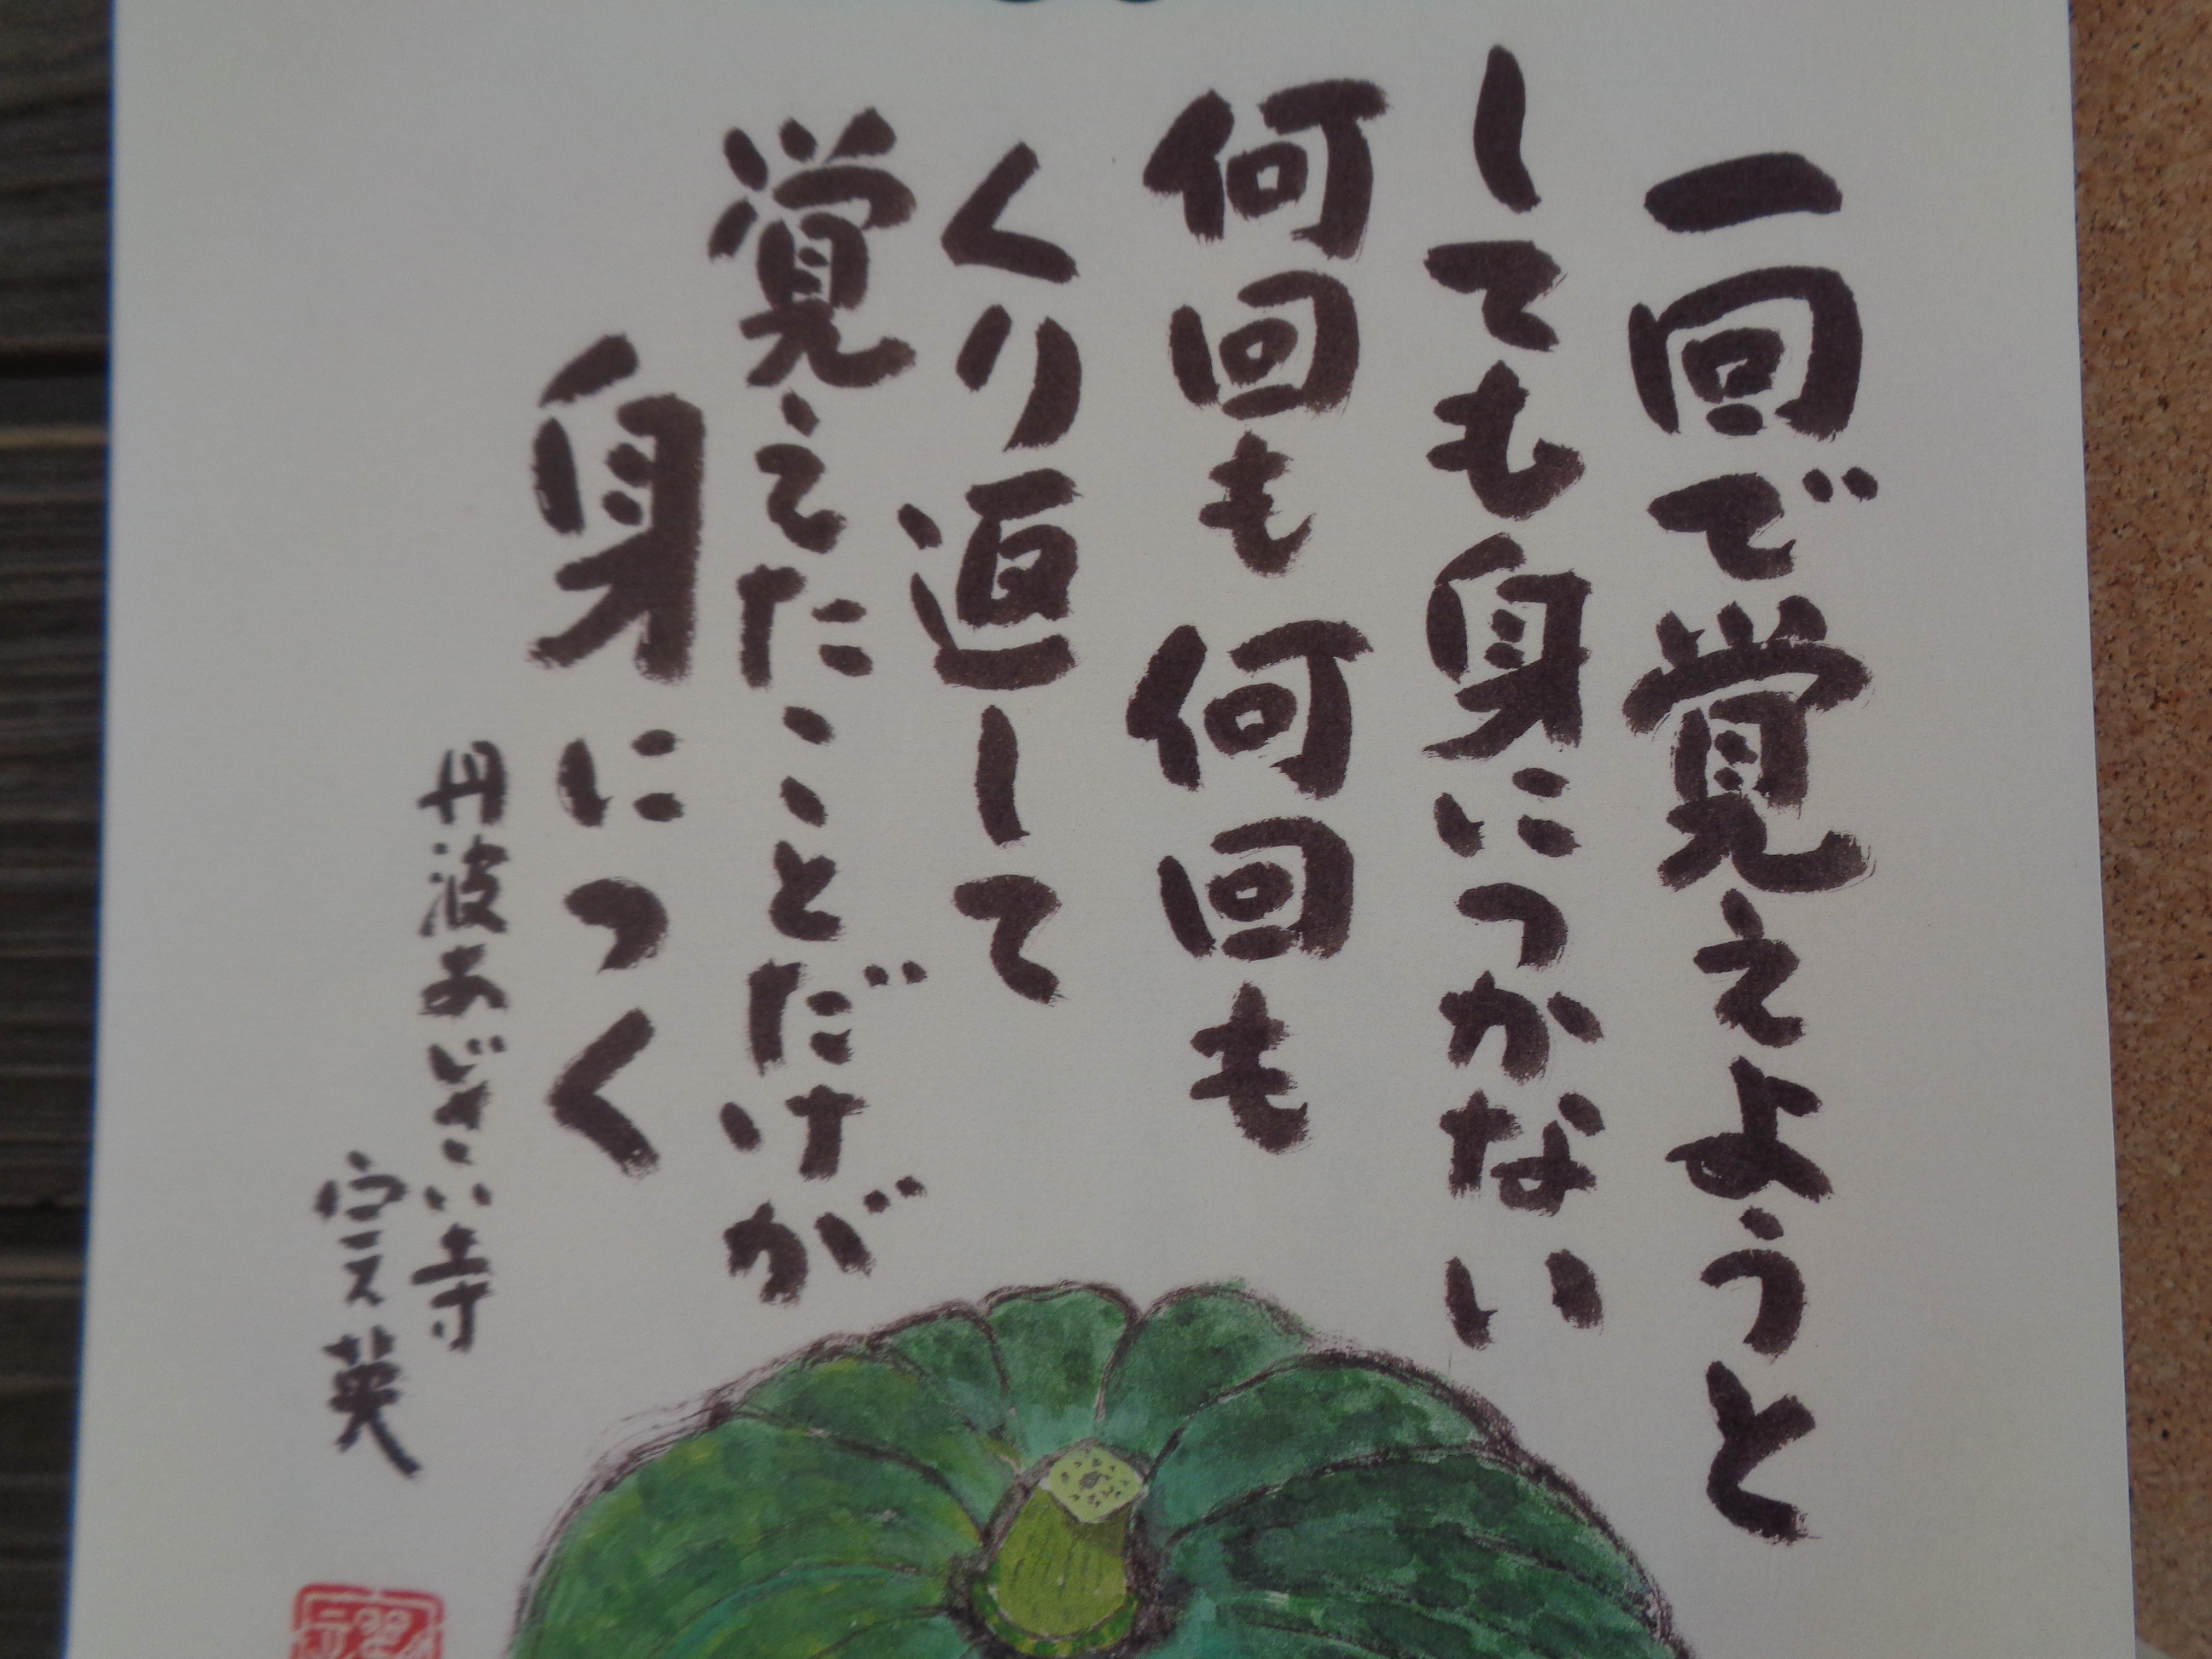 一回で覚えようと
しても身につかない
何回も何回も
くり返して
覚えたことだけが
身につく
丹波あじさい寺
英